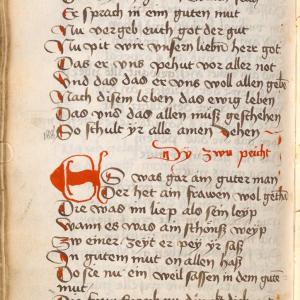 Er sprach in eim guten mut
Nu vergeb euch got der gut
Nu pit wir unsern lieben here got
Das er uns pehut vor aller not
Und das das er uns woll allen geben
Nach disem leben das ewig leben
Das uns das allen muß geschehen
So schult yr alle amen jehen
Dy zwu peicht
ES was gar ain guter man
Der het ain frawen wol gethan
Die was im liep als sein leyp
Wann es was ain schönß weyp
Zw einer zeyt er pey yr saß
In gutem mut on allen haß
Do sie nu ein weil sassen in dem gute
mut